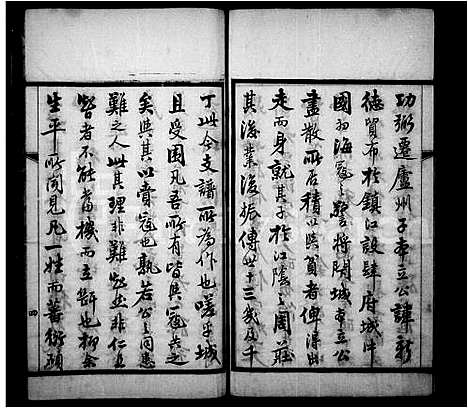 功弼遷廬州子東立公諱新
德貿布於鎮江設肆府城中
國初海寇之警將閉城東立公
盡散所居積以與貧者俾得出
走而身就其子於江陰之周莊
其後業復振傳世十三歲及千
丁此今支譜所為作也嗟乎城
且受困凡吾所有皆與寇共之
矣與其以賣寇也孰若公之同患
難之人此其理非難知然非仁且
智者不能當機而立斷也抑余
生平所聞見凡一姓而蕃衍碩
四